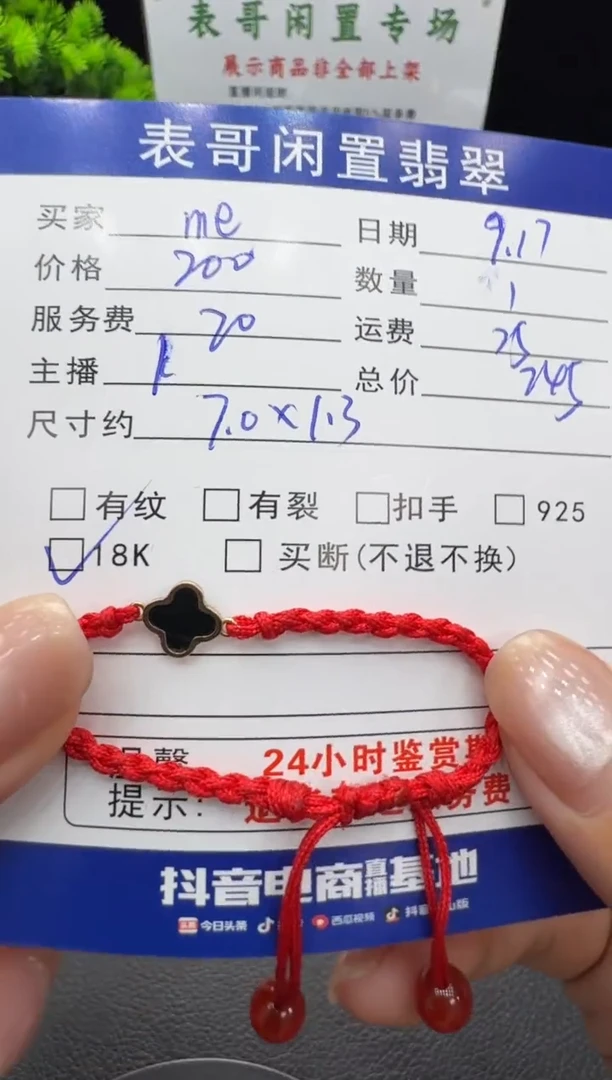 表哥闲置专场
展示商品非全部上架
表哥闲置翡翠
买家 me 日期 9.17
价格 200 数量 1
服务费 20 运费 25
主播 总价 245
尺寸约 7.0×1.3
有纹 有裂 扣手 925
18K 买断(不退不换)
24小时鉴赏期
提示:
抖音电商直播基地
今日头条 西瓜视频 抖音